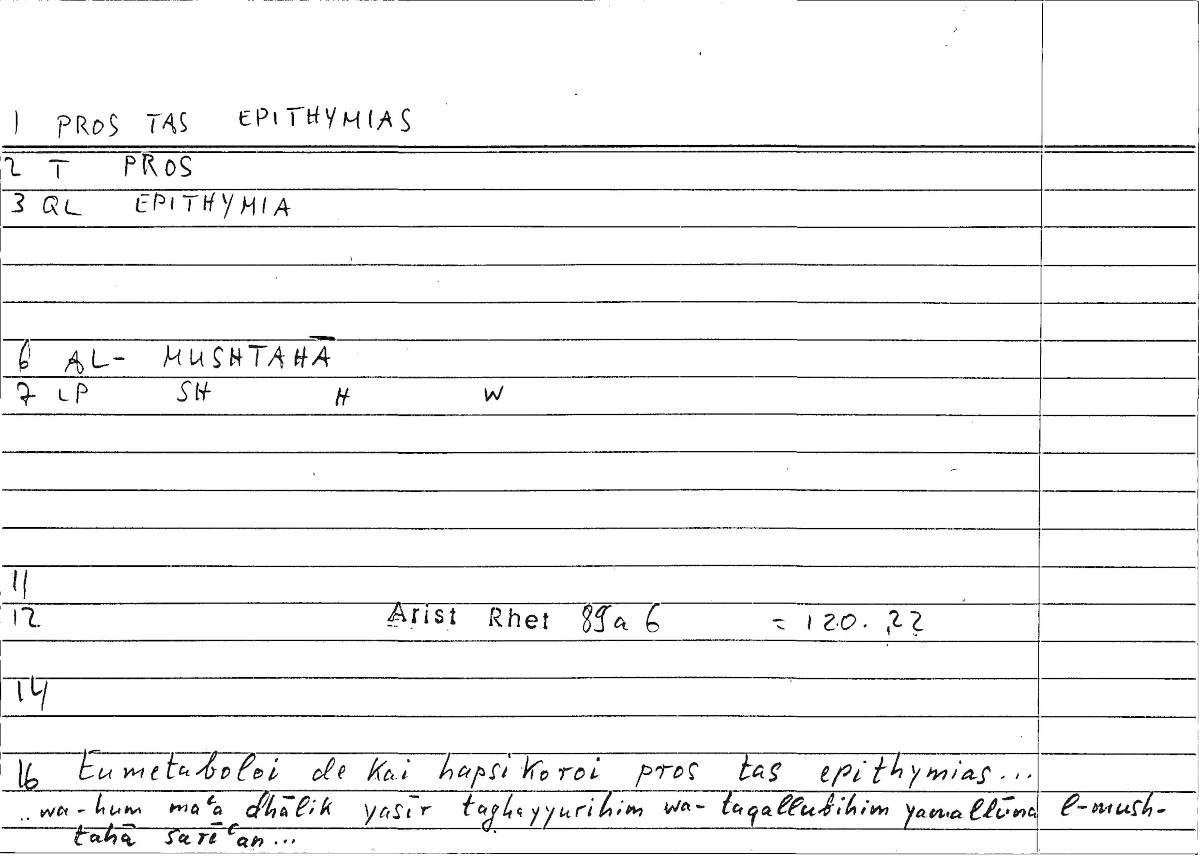 1 PROS TAS EPITHYMIAS
2 T PROS
3 QL EPITHYMIA
6 AL- MUSHTAHĀ
7 LP SH H W
11
12 Arist Rhet 89a 6 = 120. 22
14
16 Eumetaboloi de kai hapsikoroi pros tas epithymias...
..wa-hum maʿa dhālik yasīr taghayyurihim wa-taqallubihim yamallūna l-mush-
tahā sarīʿan...